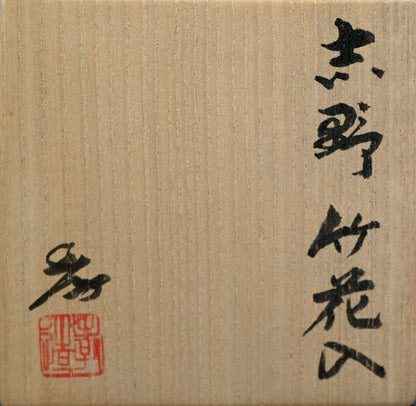 志野 竹花入